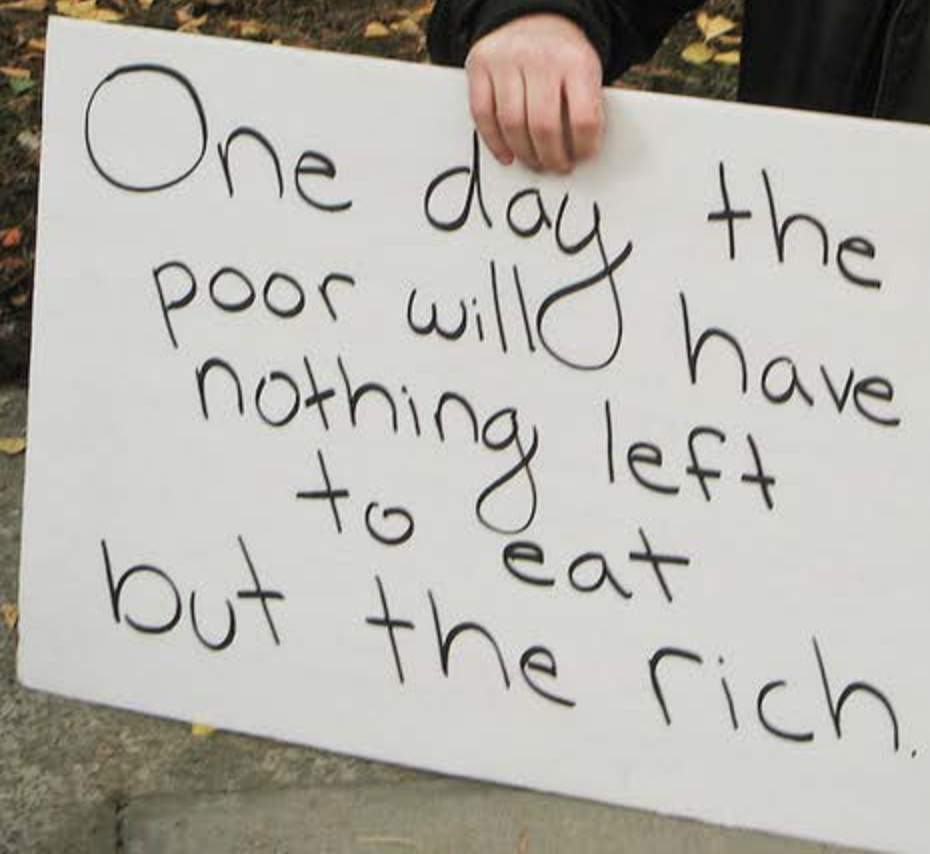 One day the
poor will have
nothing left
to eat
but the rich.